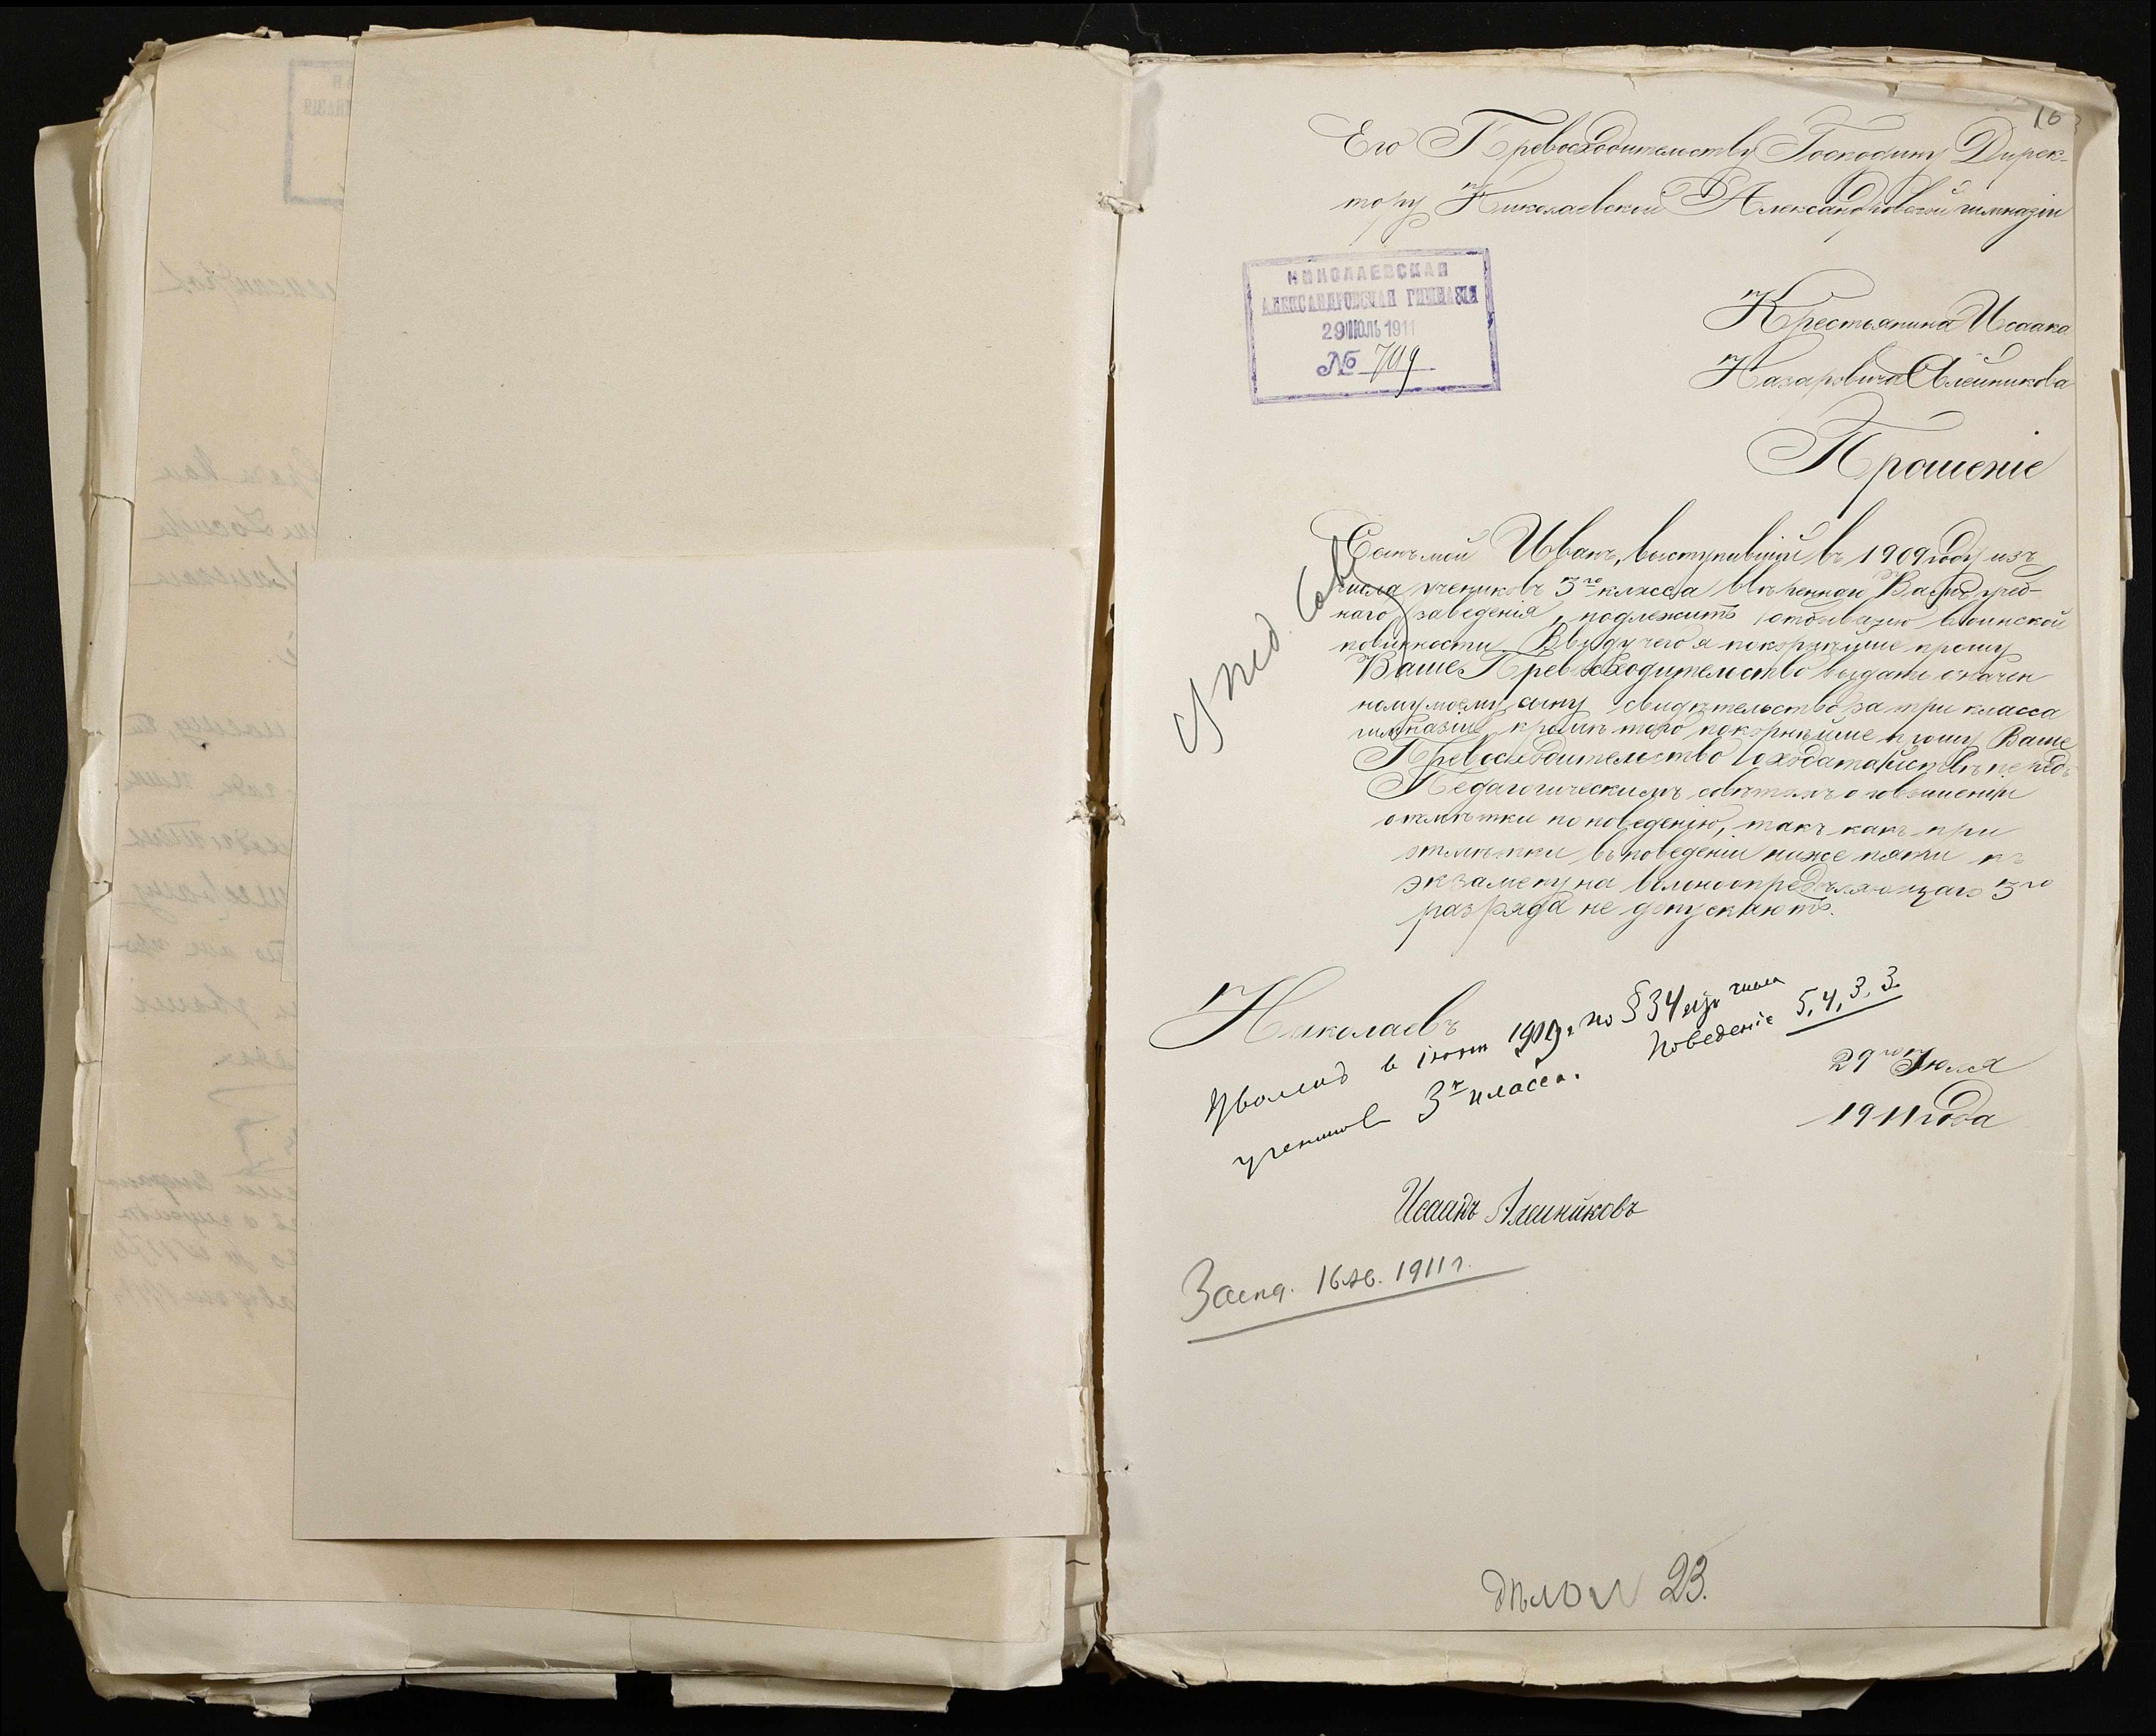 16
Его Превосходительству Господину Дирек-
тору Николаевской Александровской гимназіи
НИКОЛАЕВСКАЯ
АЛЕКСАНДРОВСКАЯ ГИМНАЗІЯ
29 ІЮЛЬ 1911
№ 709
Крестьянина Исаака
Назаровича Алейникова
Прошеніе
Сынъ мой Иванъ, выступившій въ 1909 году изъ
числа учениковъ 3го класса ввѣреннаго Вамъ учеб-
наго заведенія, подлежитъ отбыванію воинской
повинности. Ввиду чего я покорнѣйше прошу
Ваше Превосходительство выдать означен
ному моему сыну свидѣтельство за три класса
гимназіи, кромѣ того покорнѣйше прошу Ваше
Превосходительство походатайствовать передъ
Педагогическимъ совѣтомъ о повышеніи
отмѣтки по поведенію, такъ какъ при
отмѣтки въ поведеніи ниже пяти къ
экзамену на вольноопредѣляющаго 3го
разряда не допускаютъ.
Николаевъ
Уволенъ в іюнѣ 1909 г. по § 34 изъ числа
учениковъ 3го класса. Поведеніе 5, 4, 3, 3.
29го Іюля
1911 года
Исаакъ Алейниковъ
Засѣд. 16 ав. 1911 г.
дѣло № 23.